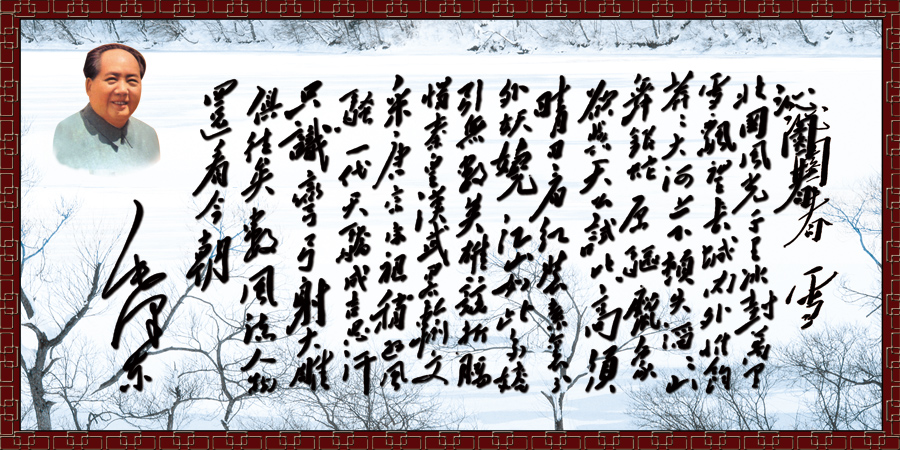 沁園春 雪
北國風光千里冰封萬里
雪飄望長城內外惟餘
莽々大河上下頓失滔々山
舞銀蛇原馳蠟象
欲與天公試比高須
晴日看紅裝素裹分
外妖嬈江山如此多嬌
引無數英雄競折腰
惜秦皇漢武略輸文
采唐宗宋祖稍遜風
騷一代天驕成吉思汗
只識彎弓射大雕
俱往矣數風流人物
還看今朝
毛澤東